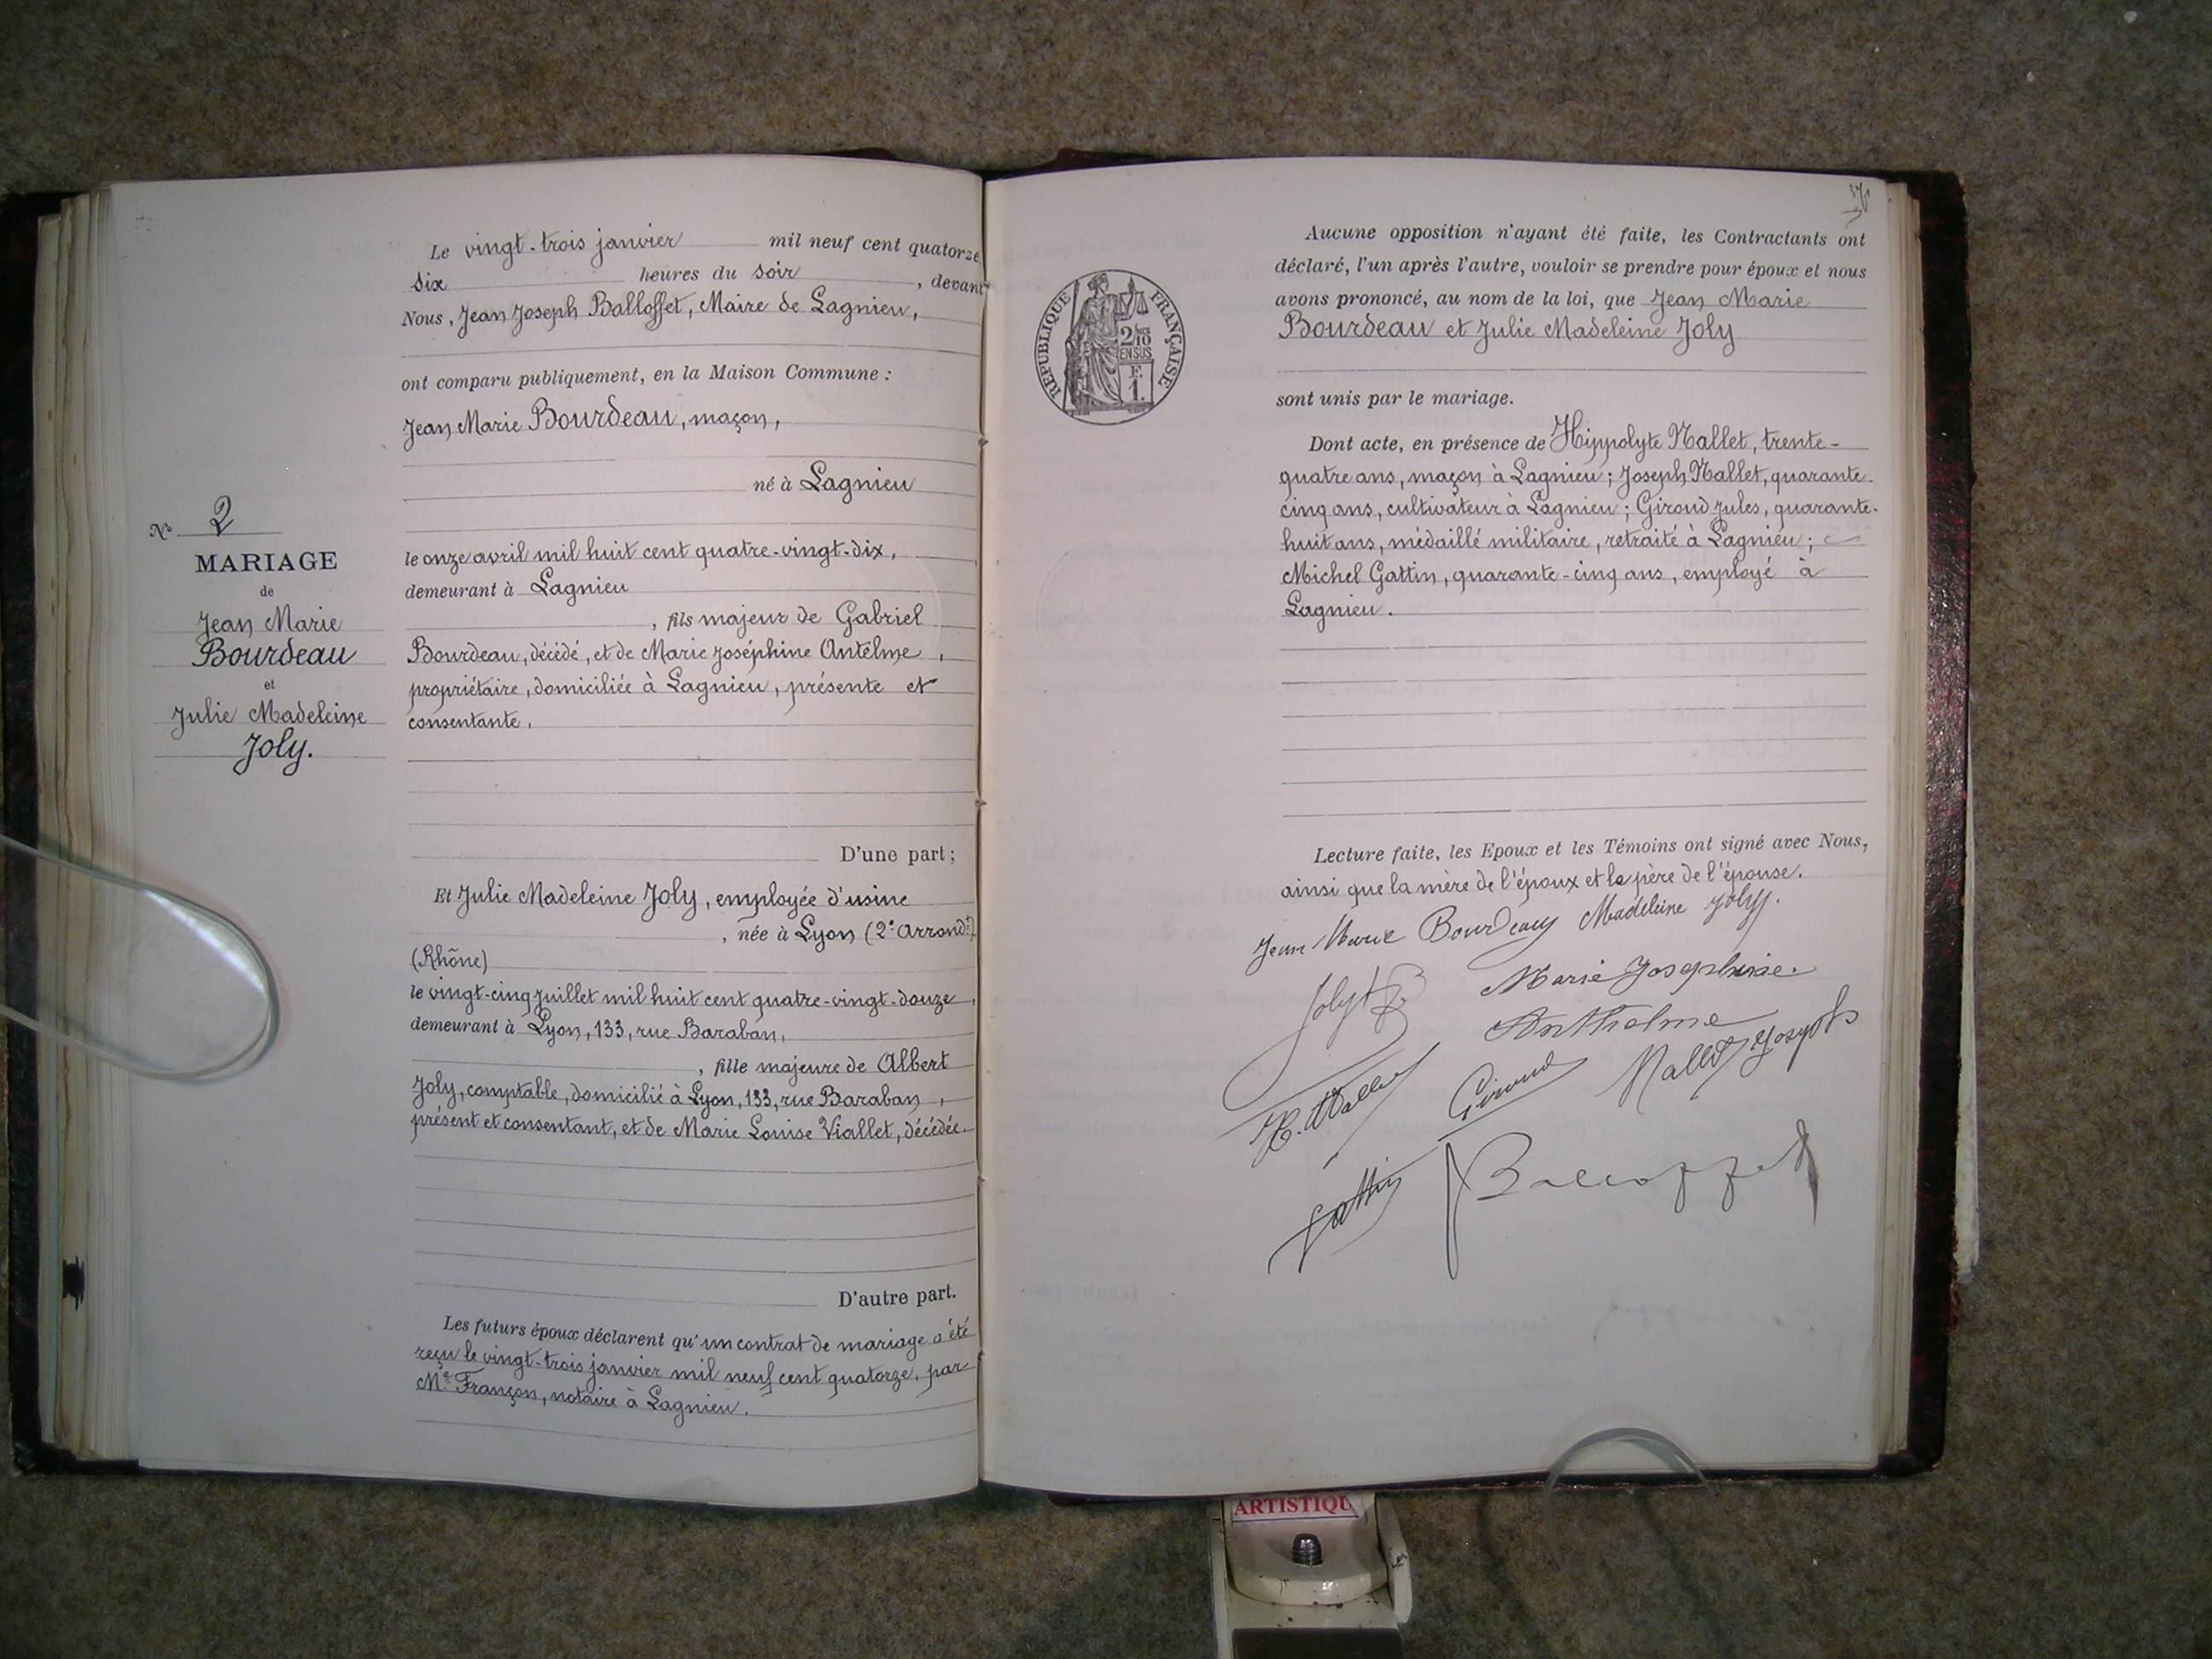 Le vingt-trois janvier mil neuf cent quatorze
six heures du soir, devant
Nous, Jean Joseph Balloffet, Maire de Lagnieu,
ont comparu publiquement, en la Maison Commune :
Jean Marie Bourdeau, maçon,
né à Lagnieu
le onze avril mil huit cent quatre-vingt-dix,
demeurant à Lagnieu
, fils majeur de Gabriel
Bourdeau, décédé, et de Marie Joséphine Antelme,
propriétaire, domiciliée à Lagnieu, présente et
consentante.
D'une part;
Et Julie Madeleine Joly, employée d'usine
, née à Lyon (2e Arrondt)
(Rhône)
le vingt-cinq juillet mil huit cent quatre-vingt-douze,
demeurant à Lyon, 133, rue Baraban,
, fille majeure de Albert
Joly, comptable, domicilié à Lyon, 133, rue Baraban,
présent et consentant, et de Marie Louise Viallet, décédée.
D'autre part.
Les futurs époux déclarent qu'un contrat de mariage a été
reçu le vingt-trois janvier mil neuf cent quatorze, par
Me Françon, notaire à Lagnieu.
No 2
MARIAGE
de
Jean Marie
Bourdeau
et
Julie Madeleine
Joly.
RÉPUBLIQUE FRANÇAISE
2/10
EN SUS
F.
1.
Aucune opposition n'ayant été faite, les Contractants ont
déclaré, l'un après l'autre, vouloir se prendre pour époux et nous
avons prononcé, au nom de la loi, que Jean Marie
Bourdeau et Julie Madeleine Joly
sont unis par le mariage.
Dont acte, en présence de Hippolyte Nallet, trente-
quatre ans, maçon à Lagnieu; Joseph Nallet, quarante-
cinq ans, cultivateur à Lagnieu; Giroud Jules, quarante-
huit ans, médaillé militaire, retraité à Lagnieu;
Michel Gattin, quarante-cinq ans, employé à
Lagnieu.
Lecture faite, les Epoux et les Témoins ont signé avec Nous,
ainsi que la mère de l'époux et le père de l'épouse.
Jean Marie Bourdeau Madeleine Joly.
Joly
Marie Josephine
Anthelme
H. Nallet
Giroud
Nallet Joseph
Gattin
Balloffet
ARTISTIQU